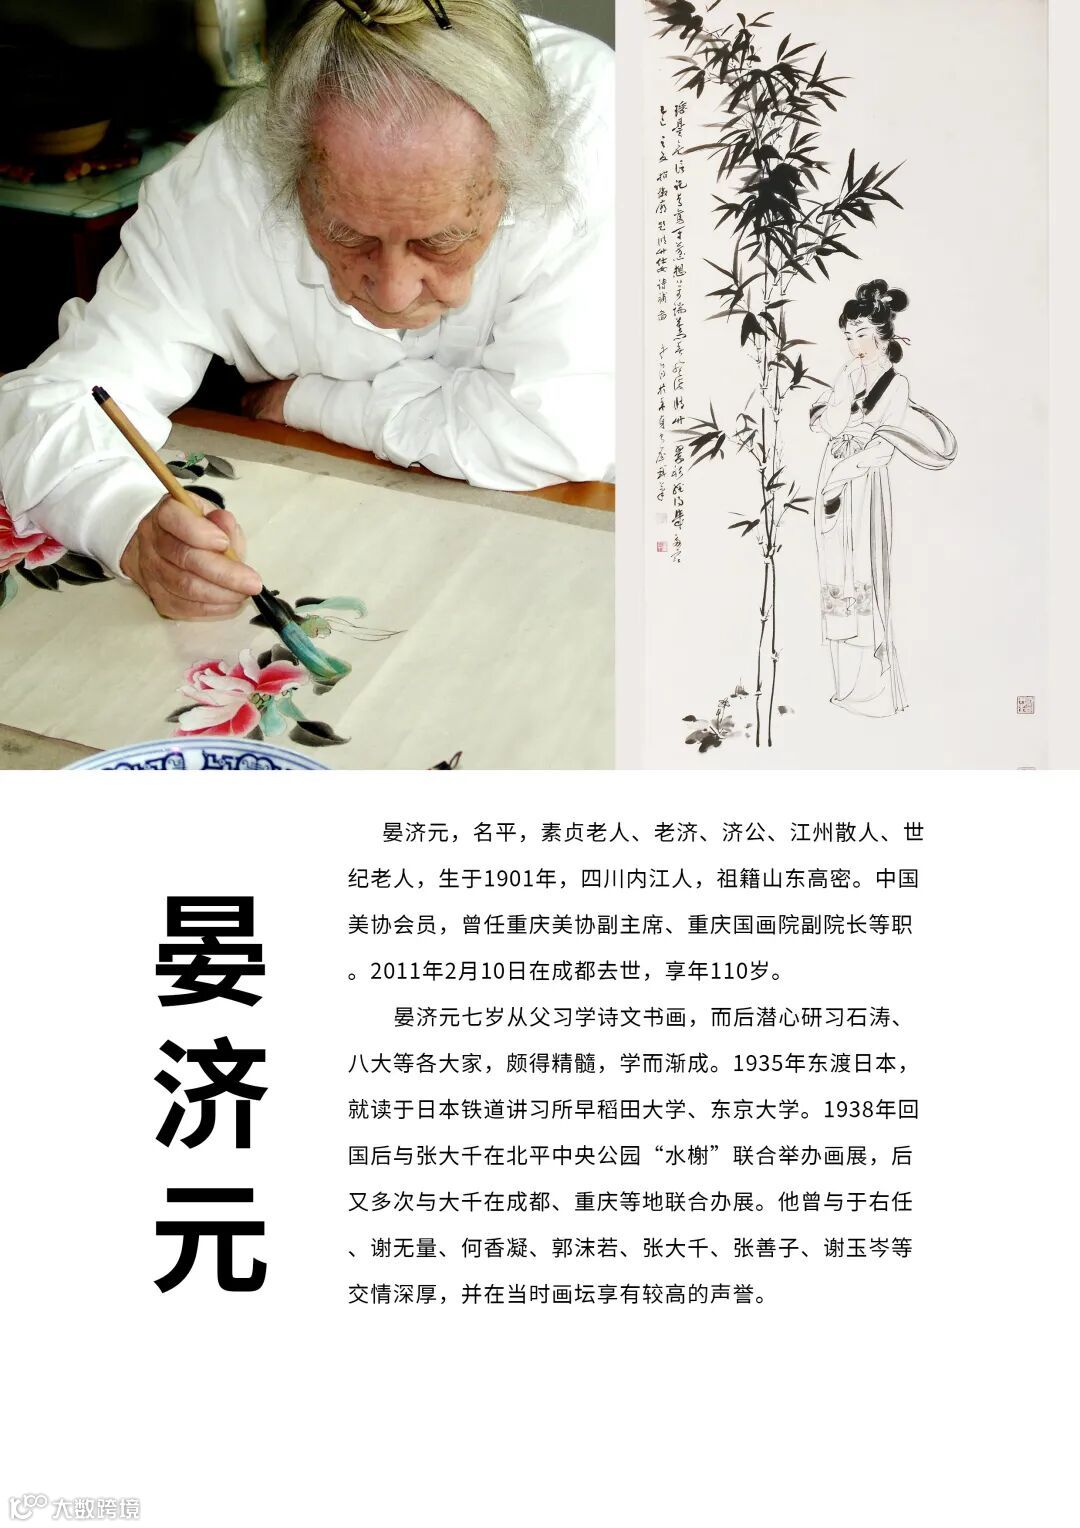 晏济元
晏济元，名平，素贞老人、老济、济公、江州散人、世
纪老人，生于1901年，四川内江人，祖籍山东高密。中国
美协会员，曾任重庆美协副主席、重庆国画院副院长等职
。2011年2月10日在成都去世，享年110岁。
晏济元七岁从父习学诗文书画，而后潜心研习石涛、
八大等各大家，颇得精髓，学而渐成。1935年东渡日本，
就读于日本铁道讲习所早稻田大学、东京大学。1938年回
国后与张大千在北平中央公园“水榭”联合举办画展，后
又多次与大千在成都、重庆等地联合办展。他曾与于右任
、谢无量、何香凝、郭沫若、张大千、张善子、谢玉岑等
交情深厚，并在当时画坛享有较高的声誉。
大数跨境